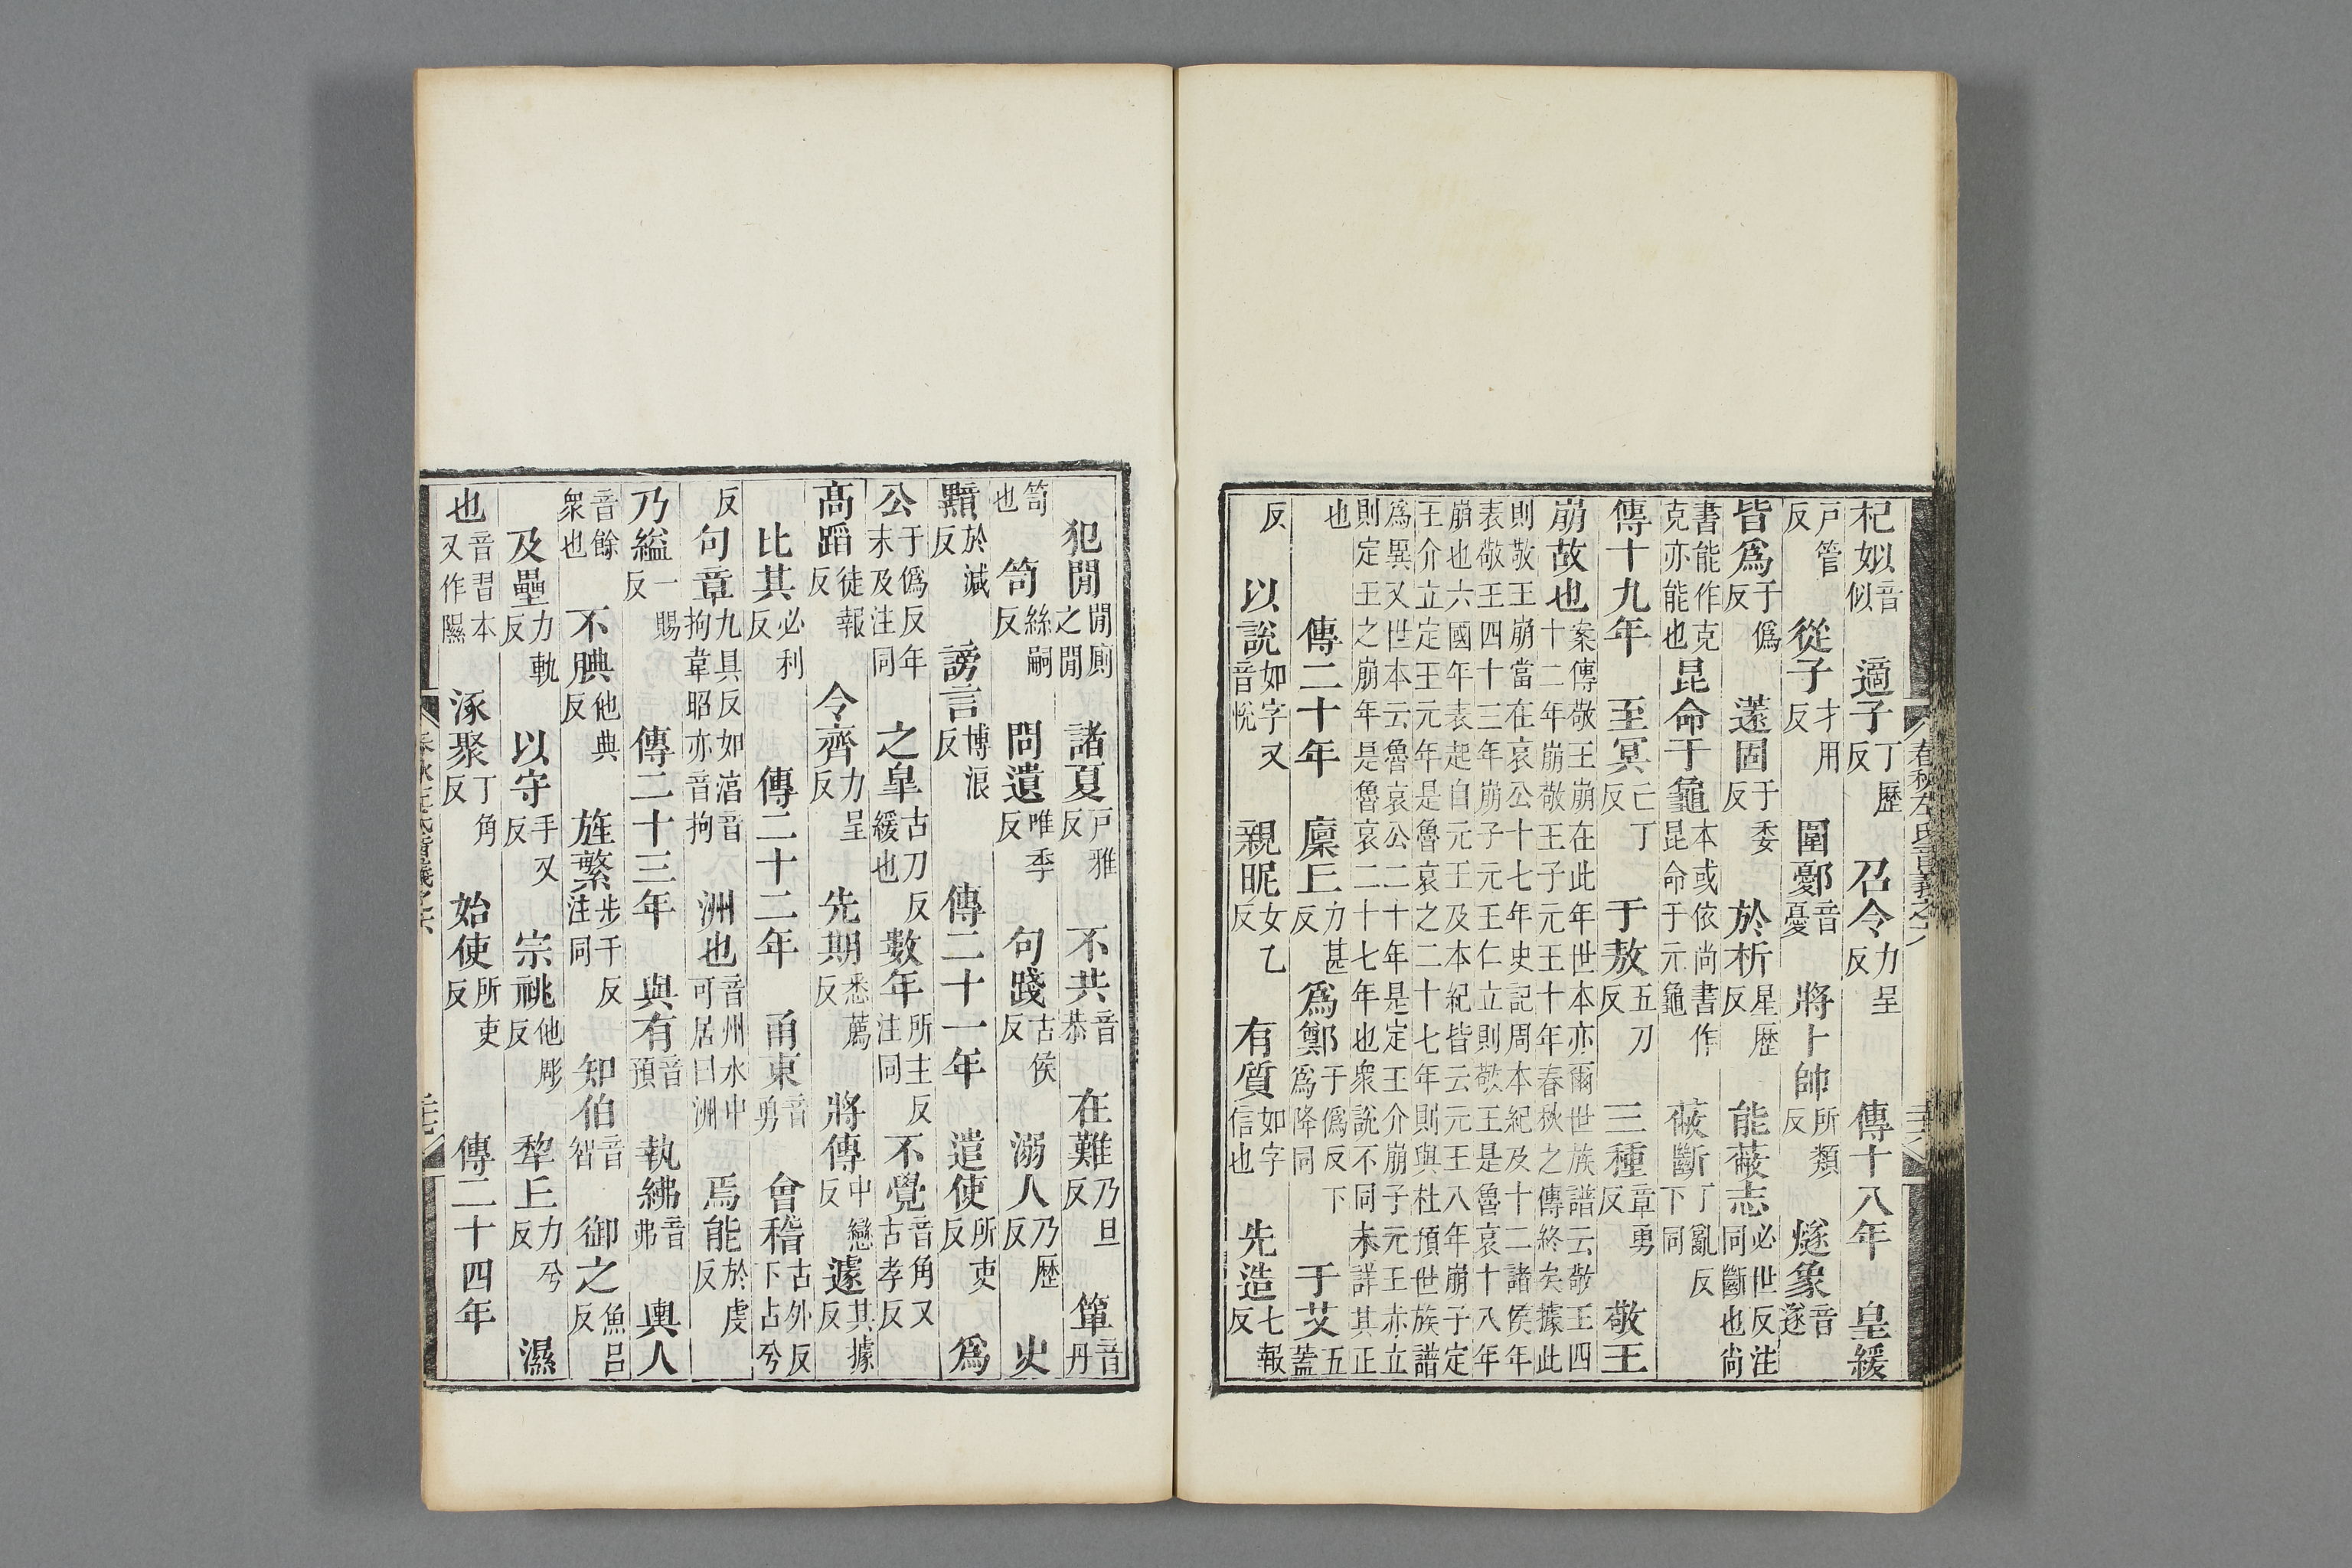 春秋左氏音義之六
杞姒音似 適子丁歷反 召令力呈反 傳十八年 皇緩
戶管反 從子才用反 圍鄾音憂 將卜帥所類反 燧象音遂
皆爲于僞反 薳固于委反 於析星歷反 能蔽志必世反注同斷也尚
書能作克克亦能也 昆命于龜本或依尚書作昆命于元龜 蔽斷丁亂反下同
傳十九年 至冥亡丁反 于敖五刀反 三種章勇反 敬王
崩故也案傳敬王崩在此年世本亦爾世族譜云敬王四十二年崩敬王子元王十年春秋之傳終矣據此
則敬王崩當在哀公十七年史記周本紀及十二諸侯年表敬王四十二年崩子元王仁立則敬王是魯哀十八年
崩也六國年表起自元王及本紀皆云元王八年崩子定王介立定王元年是魯哀之二十七年則與杜預世族譜
爲異又世本云魯哀公二十年是定王介崩子元王赤立則定王之崩年是魯哀二十七年也衆說不同未詳其正
也 傳二十年 廩丘力甚反 爲鄭于僞反下爲降同 于艾五蓋
反 以說如字又音悅 親昵女乙反 有質如字信也 先造七報反
犯閒閒廁之閒 諸夏戶雅反 不共音恭 在難乃旦反 簞音丹
笥也 笥絲嗣反 問遺唯季反 句踐古侯反 溺人乃歷反 史
黯於減反 謗言博浪反 傳二十一年 遣使所吏反 爲
公于僞反年末及注同 之皐古刀反緩也 數年所主反注同 不覺音角又古孝反
髙蹈徒報反 令齊力呈反 先期悉薦反 將傳中戀反 遽其據反
比其必利反 傳二十二年 甬東音勇 會稽古外反下占兮
反 句章九具反如湻音拘韋昭亦音拘 洲也音州水中可居曰洲 焉能於虔反
乃縊一賜反 傳二十三年 與有音預 執紼音弗 輿人
音餘衆也 不腆他典反 旌繁步干反注同 知伯音智 御之魚呂反
及壘力軌反 以守手又反 宗祧他彫反 犂丘力兮反 濕
也音習本又作隰 涿聚丁角反 始使所吏反 傳二十四年
春秋左氏音義之六